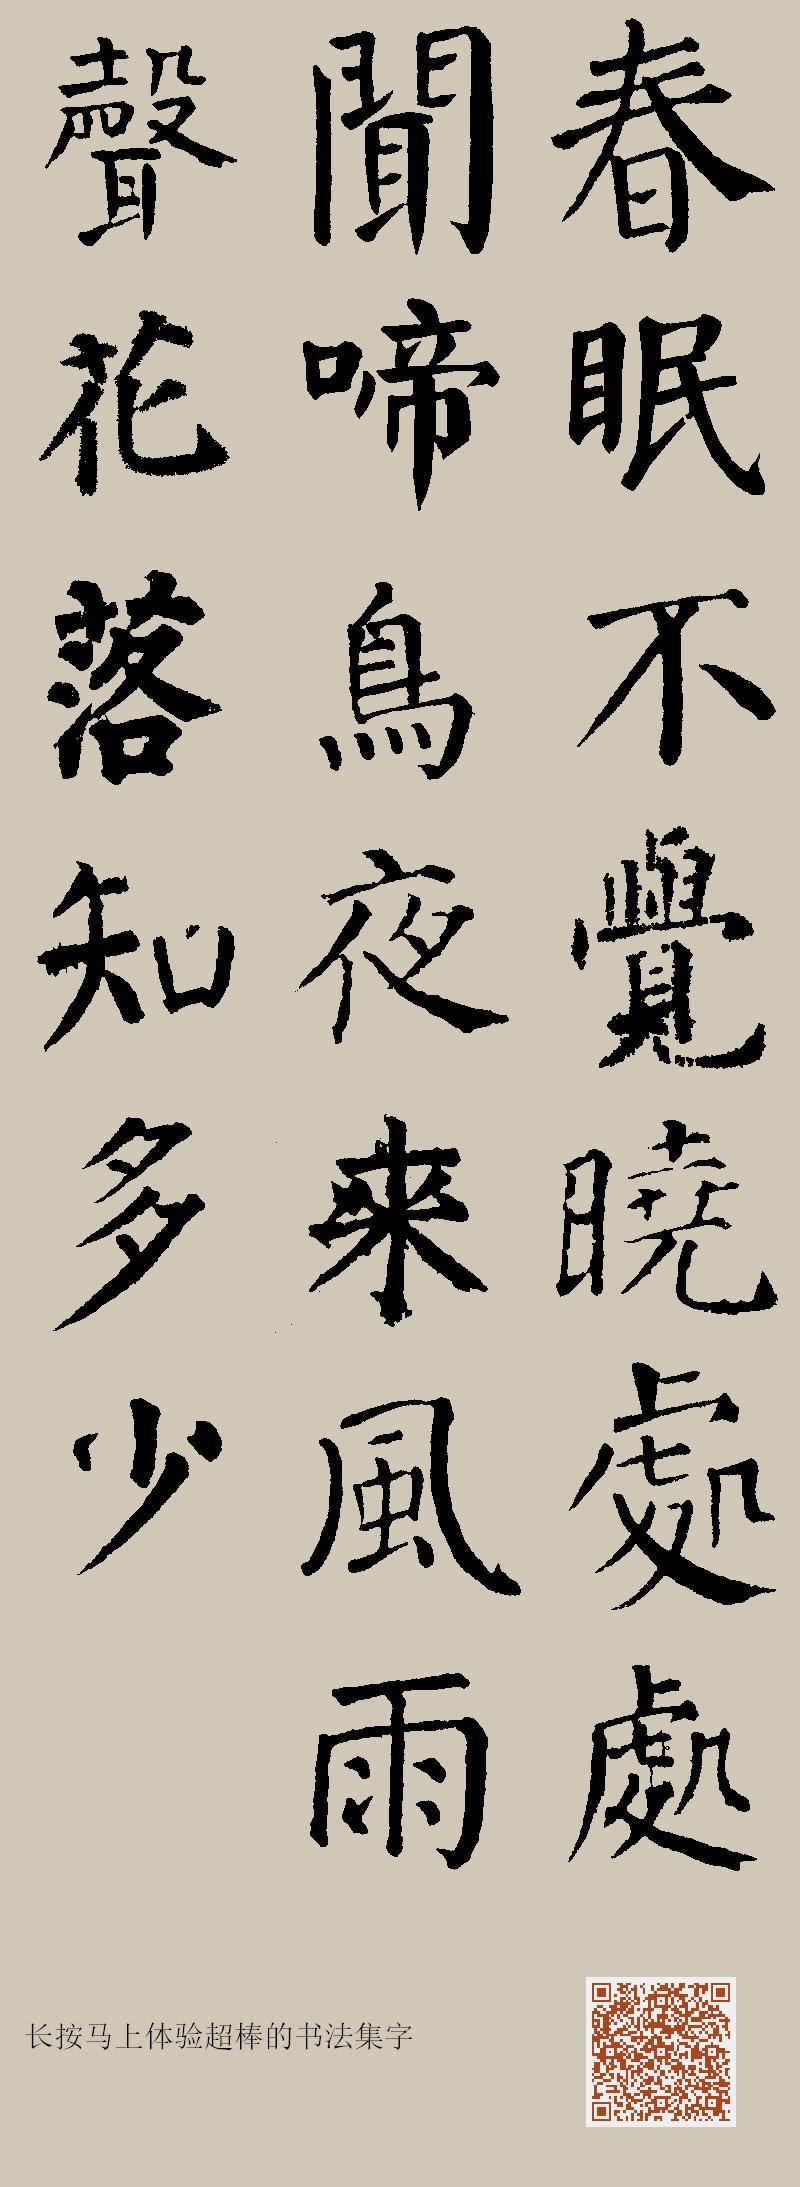 春眠不覺曉處處
聞啼鳥夜來風雨
聲花落知多少
长按马上体验超棒的书法集字